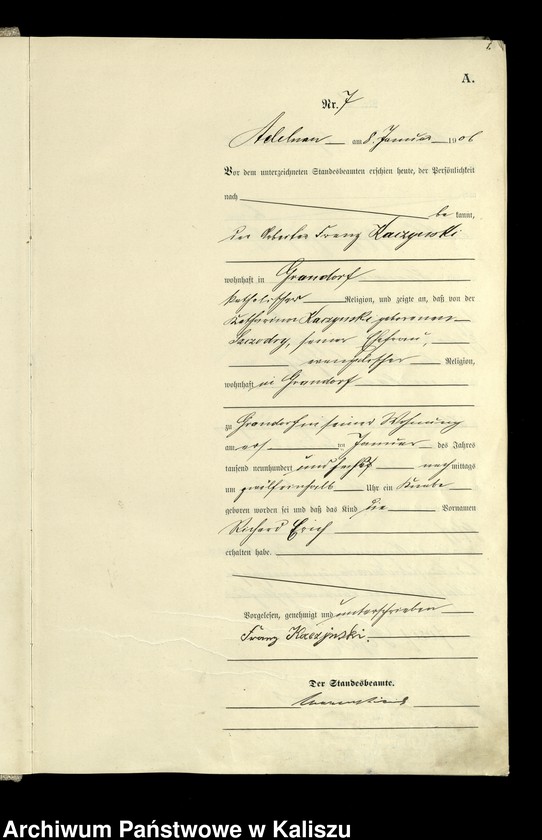 A.
Nr. 7
Adelnau am 8. Januar 1906
Vor dem unterzeichneten Standesbeamten erschien heute, der Persönlichkeit
nach
be kannt,
der Arbeiter Franz Kaczynski
wohnhaft in Grandorf
katholischer Religion, und zeigte an, daß von der
Katharina Kaczynski geborenen
seiner Ehefrau,
evangelischer Religion,
wohnhaft in Grandorf
zu Grandorf in seiner Wohnung
am Januar des Jahres
tausend neunhundert und sechs nach mittags
um Uhr ein Knabe
geboren worden sei und daß das Kind die Vornamen
Richard Erich
erhalten habe.
Vorgelesen, genehmigt und unterschrieben
Franz Kaczynski.
Der Standesbeamte.
Archiwum Państwowe w Kaliszu